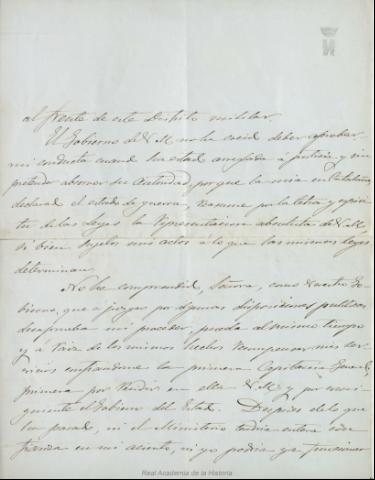 al frente de este Distrito militar.
El Gobierno de V.M. no ha creido deber aprobar
mi conducta cuando ha estado arreglada á justicia y sin
pretender abonar su autoridad, porque la mia en Cataluña,
declarado el estado de guerra, asume por la letra y espiri-
tu de las leyes la representacion absoluta de V.M.
si bien sujetos mis actos a lo que las mismas leyes
determinan.
No he comprendido, Señora, como Vuestro Go-
bierno, que á juzgar por algunas disposiciones publicas
desaprueba mi proceder, pueda al mismo tiempo
y á raiz de los mismos hechos recompensar mis ser-
vicios confiandome la primera Capitania General,
primera por residir en ella V.M. y por consi-
guiente el Gobierno del Estado. Despues de lo que
ha pasado, ni el Ministerio tendria entera con-
fianza en mi aliento, ni yo podria ya funcionar
Real Academia de la Historia